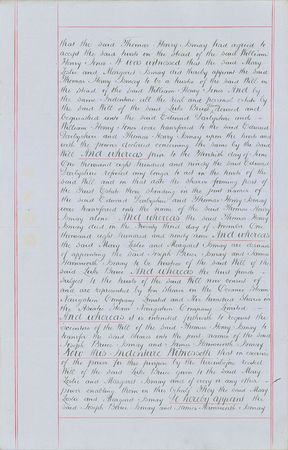 that the said Thomas Henry Ismay had agreed to
accept the said trusts in the stead of the said William
Henry Jones It was witnessed that the said Mary
and Margaret Ismay did thereby appoint the said
Thomas Henry Ismay to be a trustee of the said Will in
the stead of the said William Henry Jones And by
the same Indenture all the real and personal estate by
the said Will of the said Luke devised and
bequeathed unto the said Edmund and
William Henry Jones were transferred to the said Edmund
and Thomas Henry Ismay upon the trusts and
with the powers declared concerning the same by the said
Will And whereas prior to the thirtieth day of June
One thousand eight hundred and ninety the said Edmund
refused any longer to act in the trusts of the
said Will and on that date the shares forming part of
the Trust Estate then standing in the joint names of
the said Edmund and Thomas Henry Ismay
was transferred into the name of the said Thomas Henry
Ismay alone And whereas the said Thomas Henry
Ismay died on the twenty third day of November One
thousand eight hundred and ninety nine And whereas
the said Mary and Margaret Ismay are desirous
of appointing the said Joseph Bruce Ismay and James
Ismay to be trustees of the said Will of the
said Luke And whereas the trust funds
subject to the trusts of the said Will now consist of
and are represented by ten Shares in the Oceanic Steam
Navigation Company Limited and Shares in
the Asiatic Steam Navigation Company Limited
And whereas it is intended forthwith to request the
executors of the Will of the said Thomas Henry Ismay to
transfer the said shares into the joint names of the said
Joseph Bruce Ismay and James Ismay
Now this Indenture Witnesseth that in exercise
of the power for this purpose by the hereinbefore recited
Will of the said Luke given to the said Mary
and Margaret Ismay and of every or any other
power enabling them in this behalf They the said Mary
and Margaret Ismay Do hereby appoint the
said Joseph Bruce Ismay and James Ismay